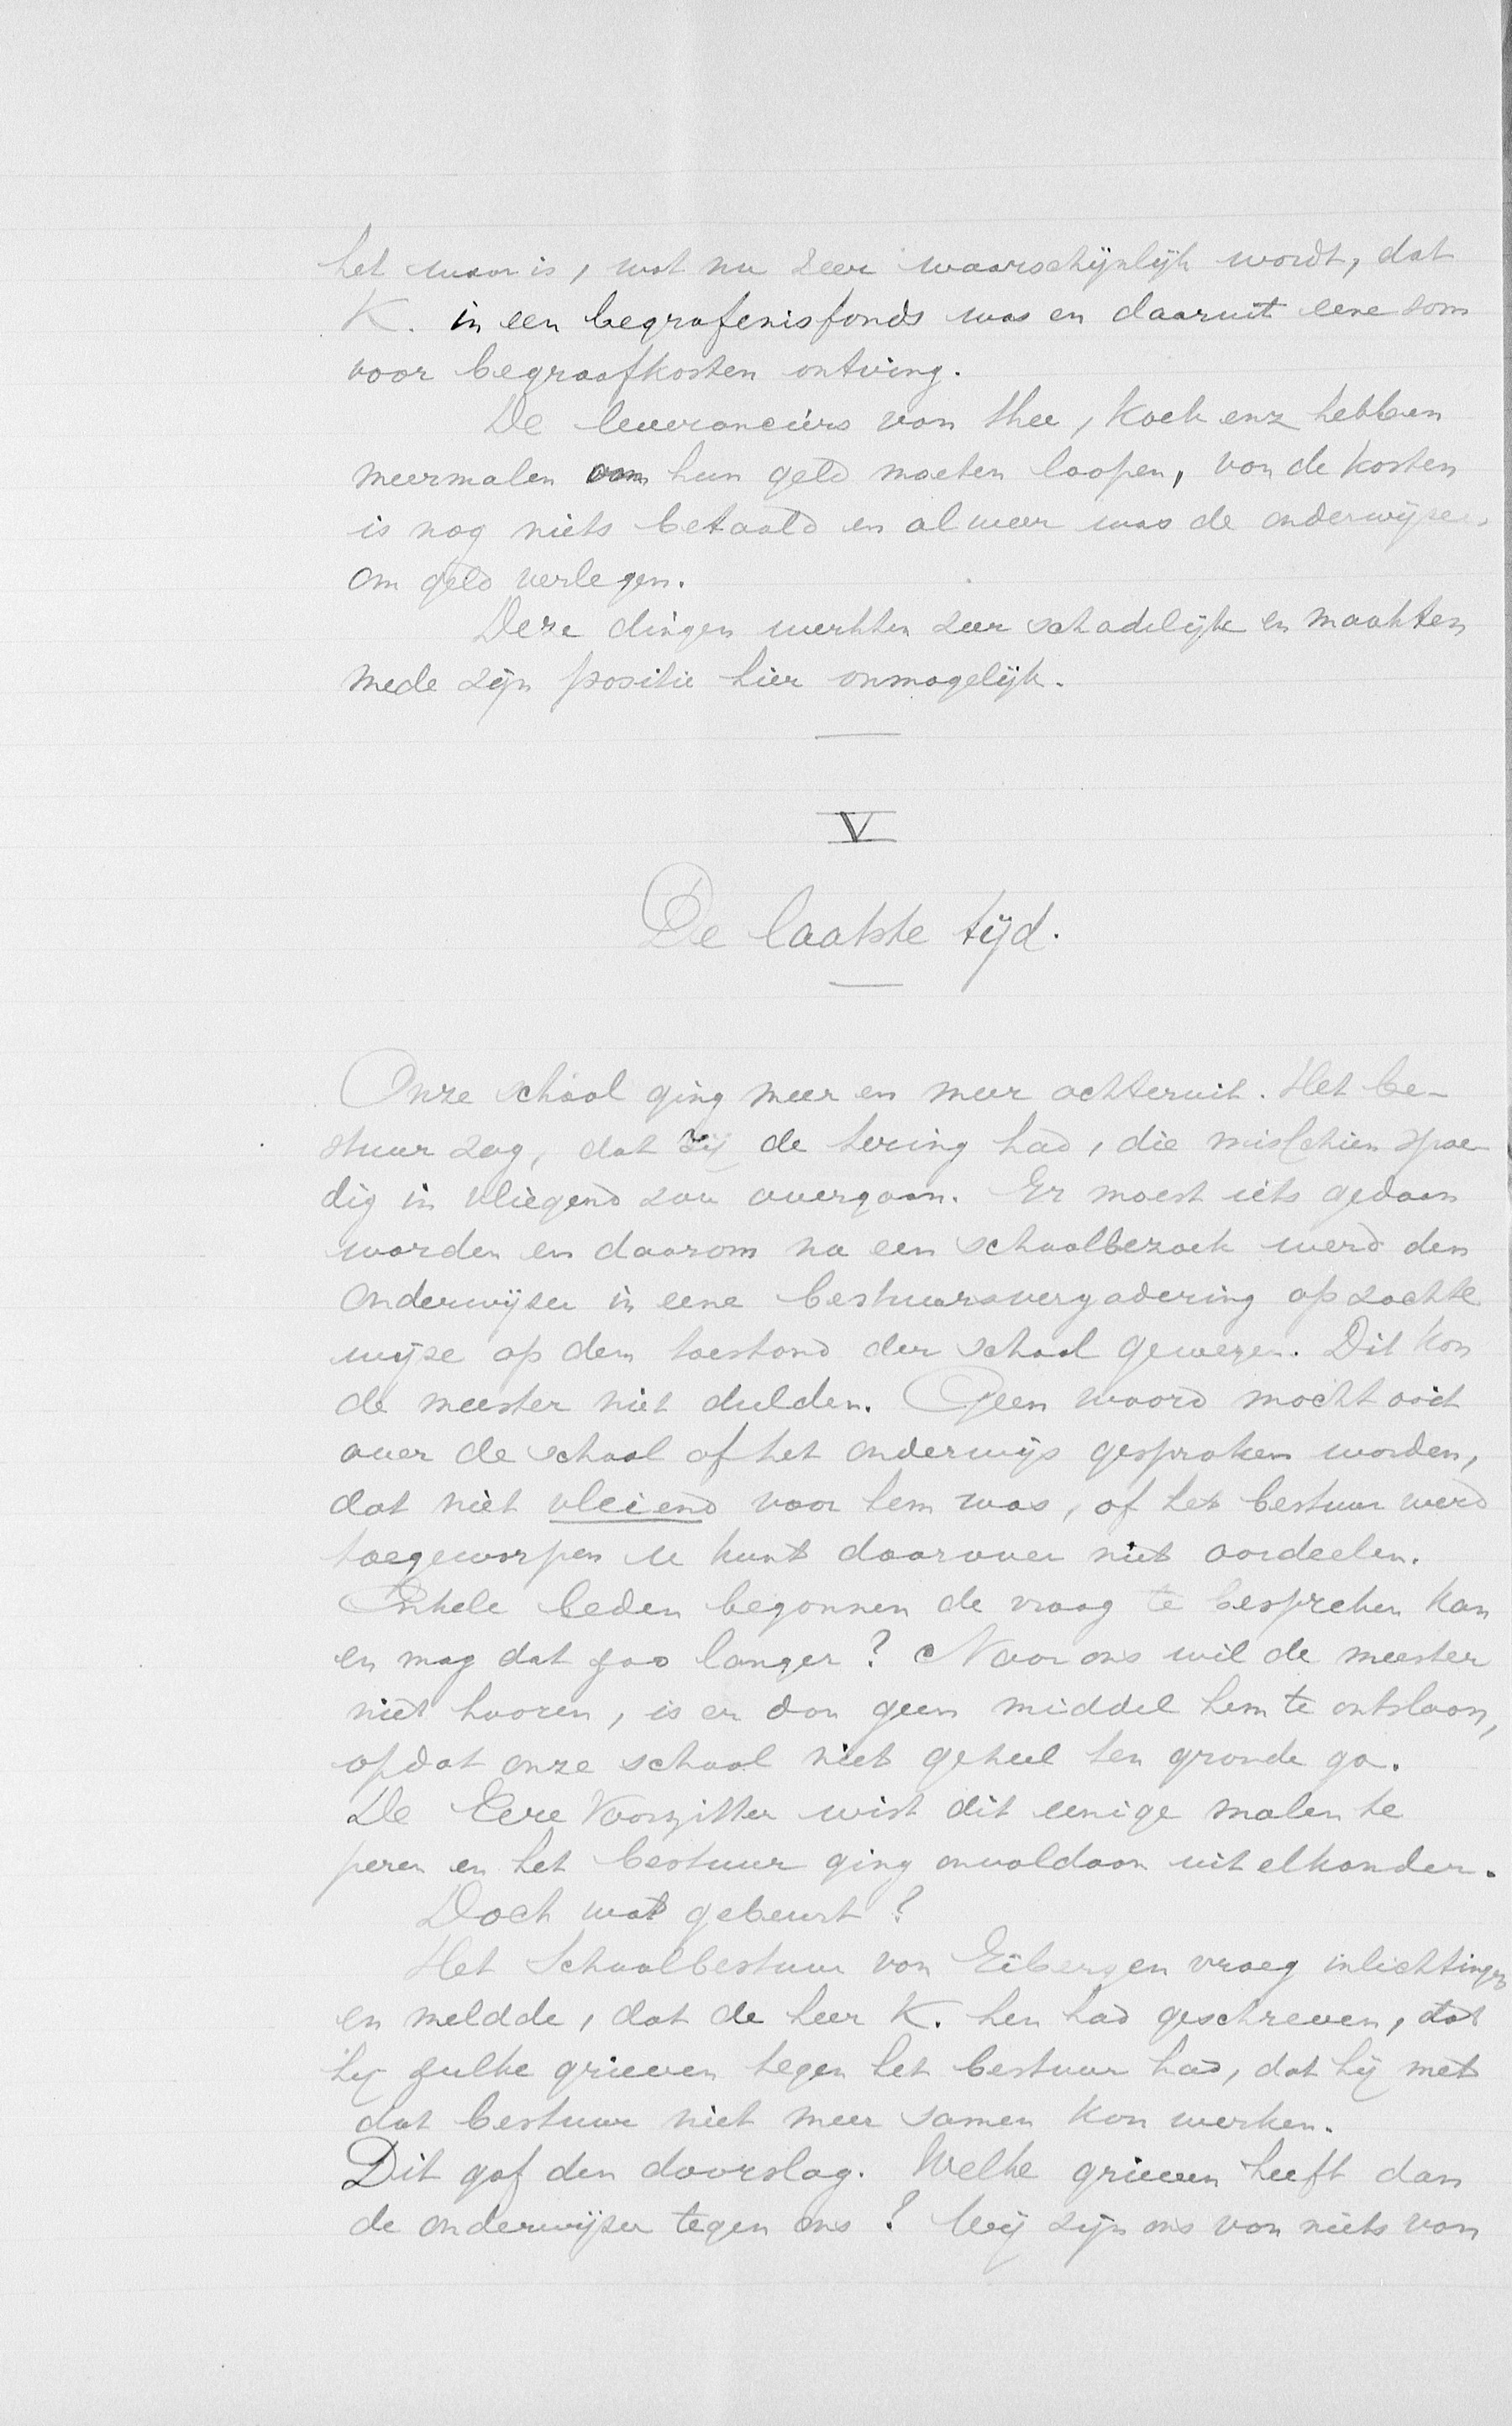 het waar is, wat nu zeer waarschijnlijk wordt, dat
K. in een begrafenisfonds was en daaruit eene som
voor begraafkosten ontving.
De leveranciers van thee, koek enz hebben
meermalen om hun geld moeten loopen, van de kosten
is nog niets betaald en al weer was de onderwijzer
om geld verlegen.
Deze dingen werkten zeer schadelijk en maakten
mede zijn positie hier onmogelijk.
V
De laatste tijd.
Onze school ging meer en meer achteruit. Het be-
stuur zag, dat zij de tering had, die misschien spoe-
dig in vliegend zou overgaan. Er moest iets gedaan
worden en daarom na een schoolbezoek werd den
onderwijzer in eene bestuursvergadering op zachte
wijze op den toestand der school gewezen. Dit kon
de meester niet dulden. Geen woord mocht ooit
over de school of het onderwijs gesproken worden,
dat niet vleiend voor hem was, of het bestuur werd
toegeworpen u kunt daarover niet oordeelen.
Enkele leden begonnen de vraag te bespreken kan
en mag dat zoo langer? Naar ons wil de meester
niet hooren, is er dan geen middel hem te ontslaan,
opdat onze school niet geheel ten gronde ga.
De Eere Voorzitter wist dit eenige malen te
peren en het bestuur ging onvoldaan uit elkander.
Doch wat gebeurt?
Het Schoolbestuur van Eibergen vroeg inlichtingen
en meldde, dat de heer K. hen had geschreven, dat
hij zulke grieven tegen het bestuur had, dat hij met
dat bestuur niet meer samen kon werken.
Dit gaf den doorslag. Welke grieven heeft dan
de onderwijzer tegen ons? Wij zijn ons van niets van